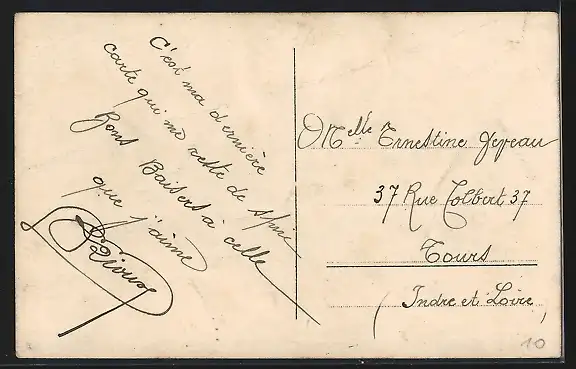 C'est ma dernière
carte qui me reste de
Bons Baisers à celle
que j'aime
Melle Ernestine
37 Rue Colbert 37
Tours
(Indre et Loire)
10